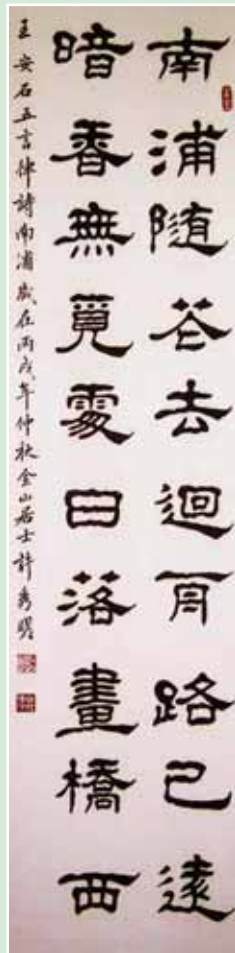 南浦隨花去迴舟路已遠
暗香無覓處日落畫橋西
王安石五言律詩南浦歲在丙戌年仲秋金山居士許秀